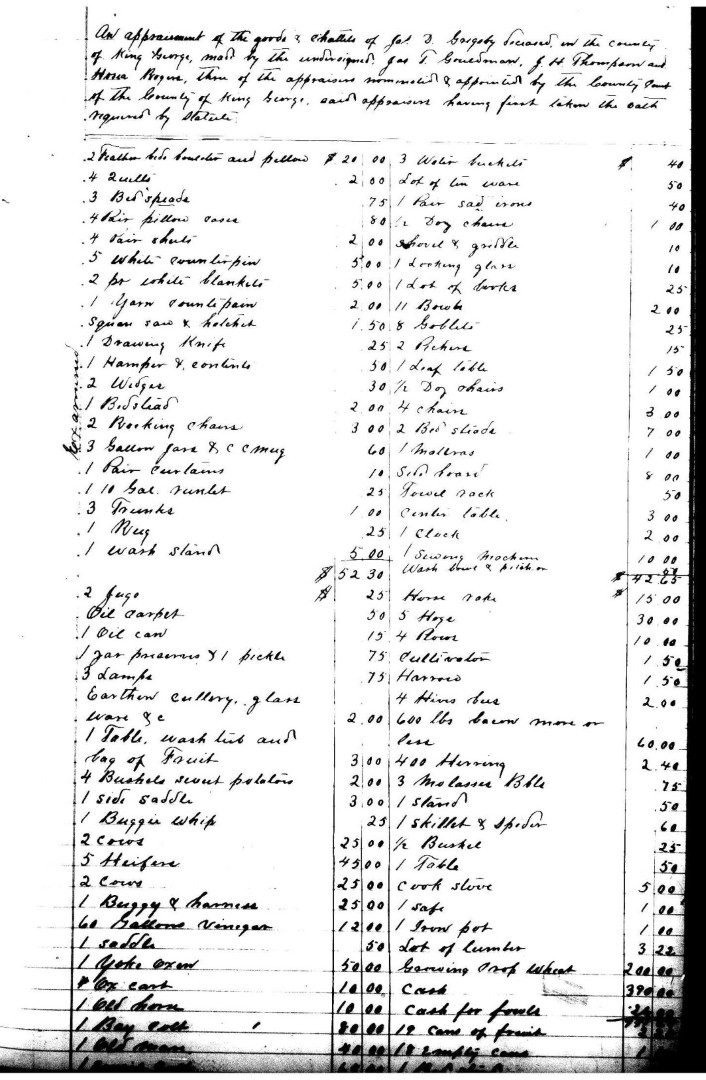 An appraisement of the goods & chattels of Jas. D. deceased, in the county
of King George, made by the undersigned, Jas T Gouldman, J H Thompson and
Hosea Rogers, three of the appraisers nominated & appointed by the County Court
of the County of King George, said appraisers having first taken the oath
required by Statute.
2 Feather beds boulster and pillow $ 20 00
4 Quilts 2 00
3 Bed speads 75
4 Pair pillow cases 80
4 Pair sheets 2 00
5 white counterpin 5.00
2 pr white blankets 5.00
1 Yarn counterpain 2 00
Square saw & hatchet 1.50
1 Drawing Knife 25
1 Hamper & contents 50
2 Wedges 30
1 Bedstead 2 00
2 Rocking chairs 3 00
3 Gallon Jars & C C mug 60
1 Pair curtains 10
1 10 Gal. runlet 25
3 Trunks 1 00
1 Rug 25
1 wash stand 5 00
$ 52 30
Examined
3 Water buckets $ 40
Lot of tin ware 50
1 Pair sad irons 40
½ Doz chairs 1 00
Shovel & griddle 10
1 Looking glass 10
1 Lot of books 25
11 Bowls 2 00
8 Goblets 25
2 Pichers 15
1 Leaf table 1 50
½ Doz chairs 1 00
4 chairs 3 00
2 Bed steads 7 00
1 Mattras 1 00
Side board 8 00
Towel rack 50
Center table 3 00
1 Clock 2 00
1 Sewing Machine 10 00
Wash bowl & pitcher 50
$ 42 65
2 Jugs $ 25
Oil carpet 50
1 Oil can 15
1 Jar preserves & 1 pickle 75
3 Lamps 75
Earthen cullery, glass
ware &c 2.00
1 Table, wash tub and
bag of Fruit 3.00
4 Bushels sweet potatoes 2.00
1 side saddle 3.00
1 Buggie whip 25
2 cows 25 00
5 Heifers 45 00
2 Cows 25 00
1 Buggy & harness 25 00
60 Gallons Vinegar 12 00
1 saddle 50
1 Yoke Oxen 50 00
Ox cart 10 00
1 Old horse 10 00
1 Bay colt 80 00
1 Old 40 00
Horse rake $ 15 00
5 Hogs 30 00
4 Plows 10 00
Cultivator 1 50
Harrow 1 50
4 Hives bees 2.00
600 lbs bacon more or
less 60.00
400 Herring 2 40
3 Molasses Bbls .75
1 stand .50
1 skillet & spider .60
½ Bushel 25
1 Table 50
Cook stove 5 00
1 safe 1 00
1 Iron pot 1 00
Lot of lumber 3 22
Growing Crop Wheat 200 00
Cash 390 00
Cash for fowls
19 cans of fruit
18 empty cans